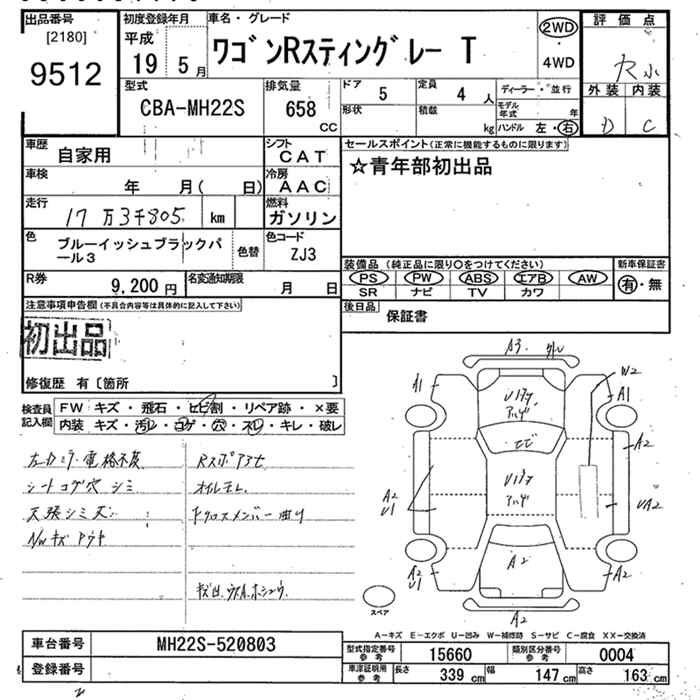 出品番号
[2180]
9512
初度登録年月
平成
19 5月
車名・グレード
ワゴンRスティングレー T
2WD
4WD
評価点
外装 内装
D C
型式
CBA-MH22S
排気量
658
CC
ドア
5
形状
定員
4 人
積載
kg
ディーラー・並行
モデル年式 年
ハンドル 左・右
車歴
自家用
シフト
CAT
セールスポイント(正常に機能するものに限ります)
☆青年部初出品
車検
年 月( 日)
冷房
AAC
走行
17万3千805 km
燃料
ガソリン
色
ブルーイッシュブラックパ
ール3
色替
色コード
ZJ3
装備品(純正品に限り○をつけてください)
新車保証書
PS PW ABS エアB AW
有・無
SR ナビ TV カワ
R券
9,200 円
名変通知期限
月 日
後日品
保証書
注意事項申告欄(不具合内容等は具体的に記入して下さい)
初出品
修復歴 有〔箇所 〕
検査員
記入欄
FW キズ・飛石・ヒビ割・リペア跡・×要
内装 キズ・汚レ・コゲ・穴・スレ・キレ・破レ
シートコゲ穴 シミ
オイルモレ
天張シミ大
A3
A1
A1
W2
A2
A2
U1
UA2
A2
U1
A2
A2
A2
スペア
A-キズ E-エクボ U-凹み W-補修跡 S-サビ C-腐食 XX-交換済
車台番号
MH22S-520803
登録番号
型式指定番号
参考
15660
類別区分番号
参考
0004
車澤証明用
参考
長さ
339 cm
幅
147 cm
高さ
163 cm